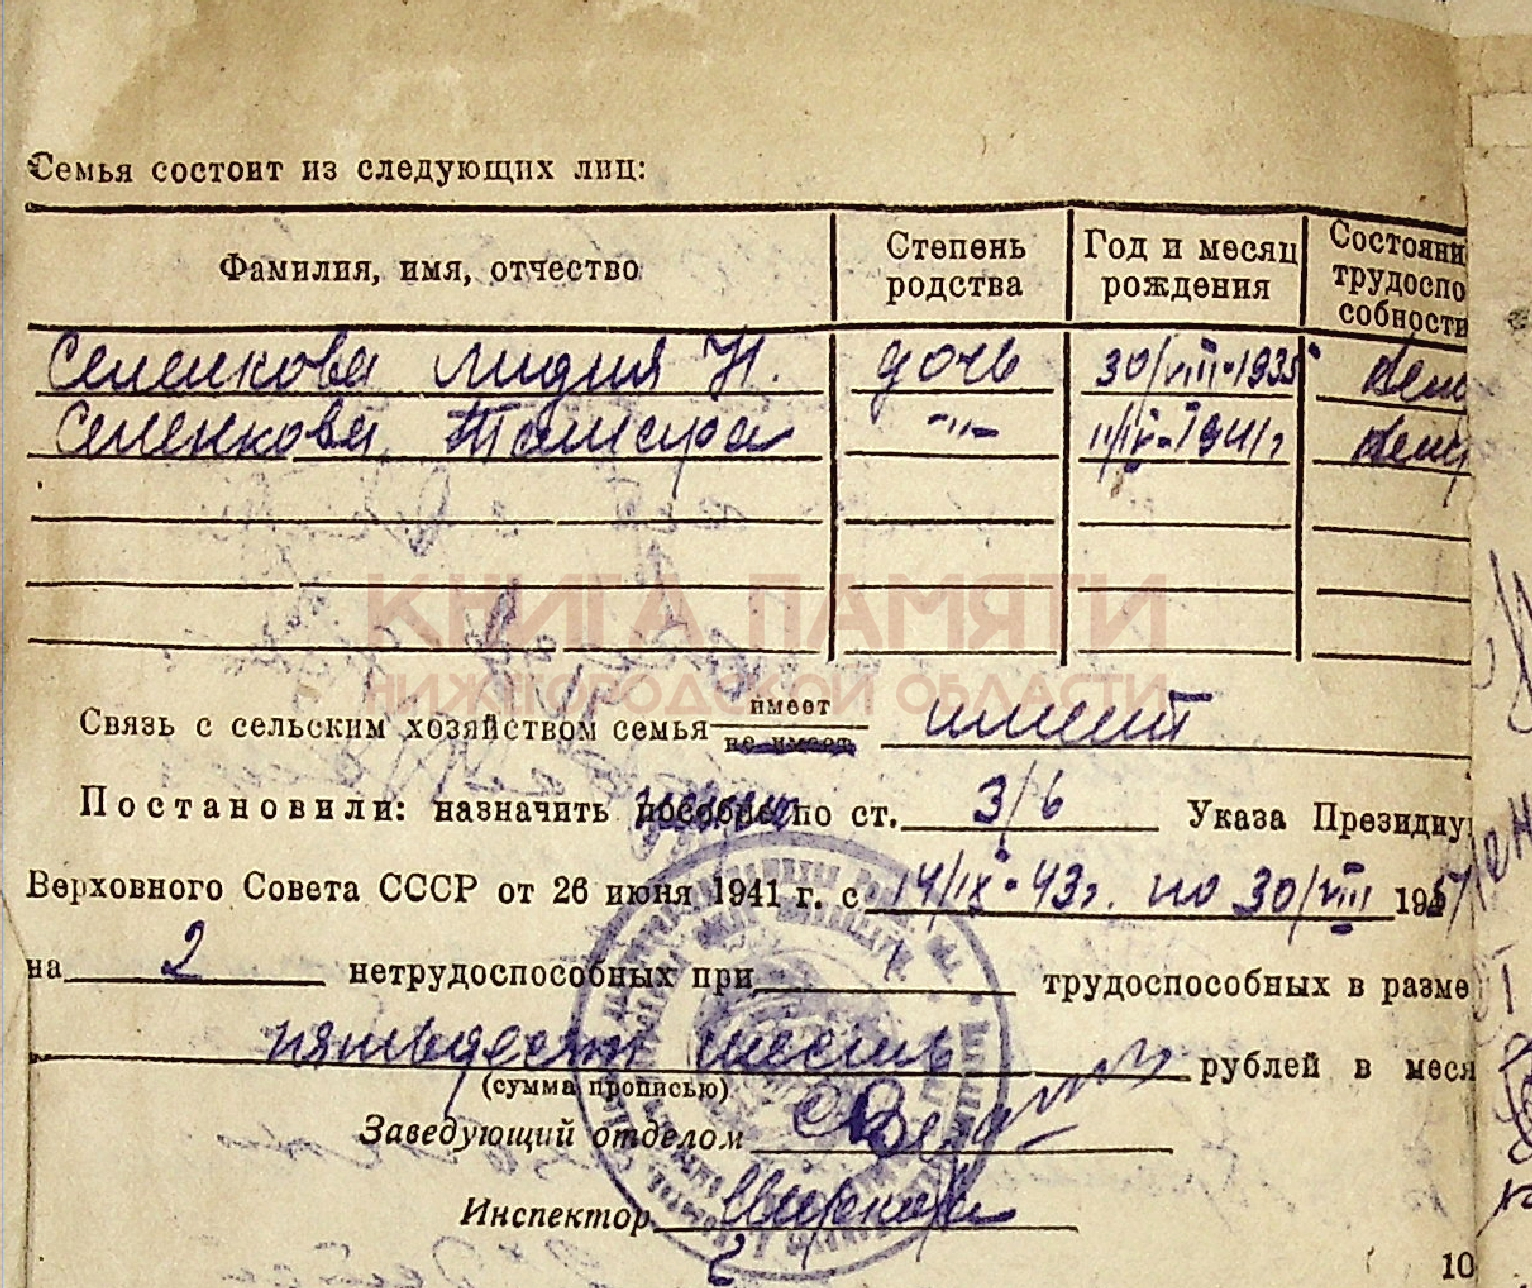 Семья состоит из следующих лиц:
Фамилия, имя, отчество Степень родства Год и месяц рождения Состояни трудоспо собности
Селенкова Лидия Н. дочь 30/VIII-1935 
Селенкова Тамара -"- 11/IV-1941г
КНИГА ПАМЯТИ
НИЖЕГОРОДСКОЙ ОБЛАСТИ
Связь с сельским хозяйством семья имеет не имеет имеет
Постановили: назначить по ст. 3/б Указа Президиу
Верховного Совета СССР от 26 июня 1941 г. с 14/IX-43г. по 30/VIII 195
на 2 нетрудоспособных при 1 трудоспособных в разме
пятьдесят шесть рублей в меся
(сумма прописью)
Заведующий отделом
Инспектор
10